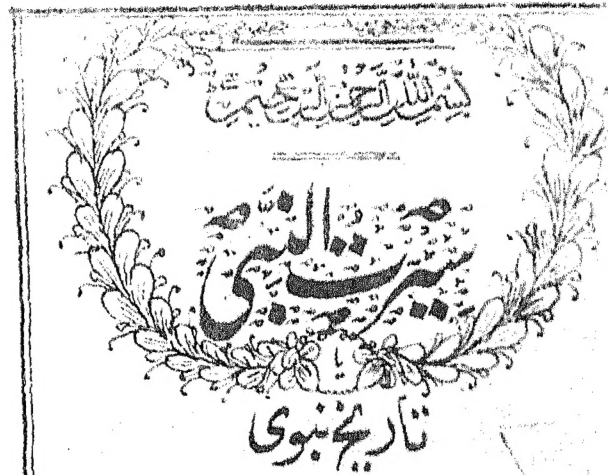 بسم اللہ الرحمن الرحیم
سیرت النبی
یا
تاریخ نبوی